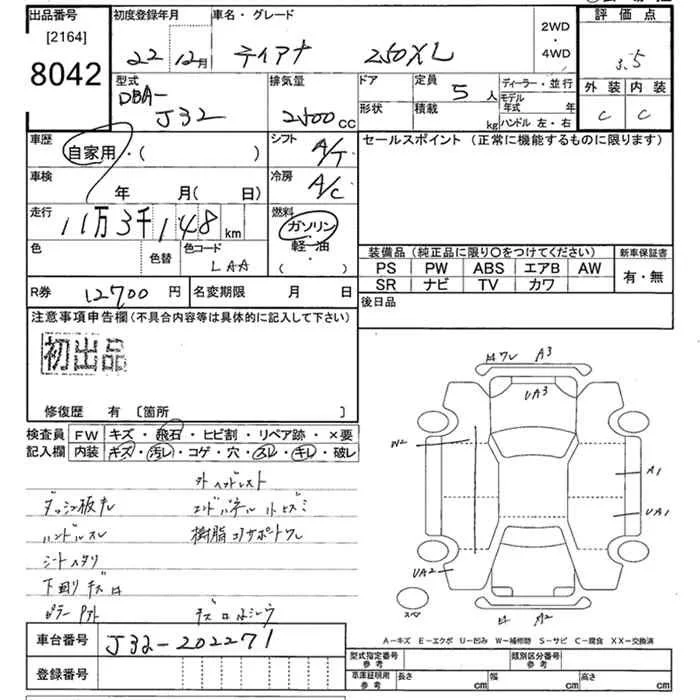 出品番号 初度登録年月 車名・グレード 2WD・4WD 評価点
[2164]
8042
22 12月 ティアナ 250XL 3.5
型式 排気量 ドア 定員 ディーラー・並行 外装 内装
DBA-
J32 2500cc 5人 モデル年式 年 C C
形状 積載 kg ハンドル 左・右
車歴 シフト セールスポイント (正常に機能するものに限ります)
自家用・( ) A/T
車検 冷房
年 月(日) A/C
走行 燃料
11万3千148km ガソリン・軽・油・( )
色 色替 色コード
LAA
装備品(純正品に限り○をつけてください) 新車保証書
PS PW ABS エアB AW 有・無
SR ナビ TV カワ
R券 12700円 名変期限 月 日 後日品
注意事項申告欄(不具合内容等は具体的に記入して下さい)
初出品
修復歴 有 [箇所 ]
検査員 FW キズ・飛石・ヒビ割・リペア跡・×要
記入欄 内装 キズ・汚レ・コゲ・穴・スレ・キレ・破レ
外ヘッドレスト
ダッシュ板キレ エンドパネル小ヒズミ
ハンドルスレ 樹脂コアサポートワレ
シートスタリ
下回りキズ
ワレ A3
UA3
W2
A1
UA1
UA2
スペア
A2
A-キズ E-エクボ U-凹み W-補修跡 S-サビ C-腐食 XX-交換済
車台番号 J32-202271
登録番号
型式指定番号 参考 類別区分番号 参考
車庫証明用 参考 長さ cm 幅 cm 高さ cm